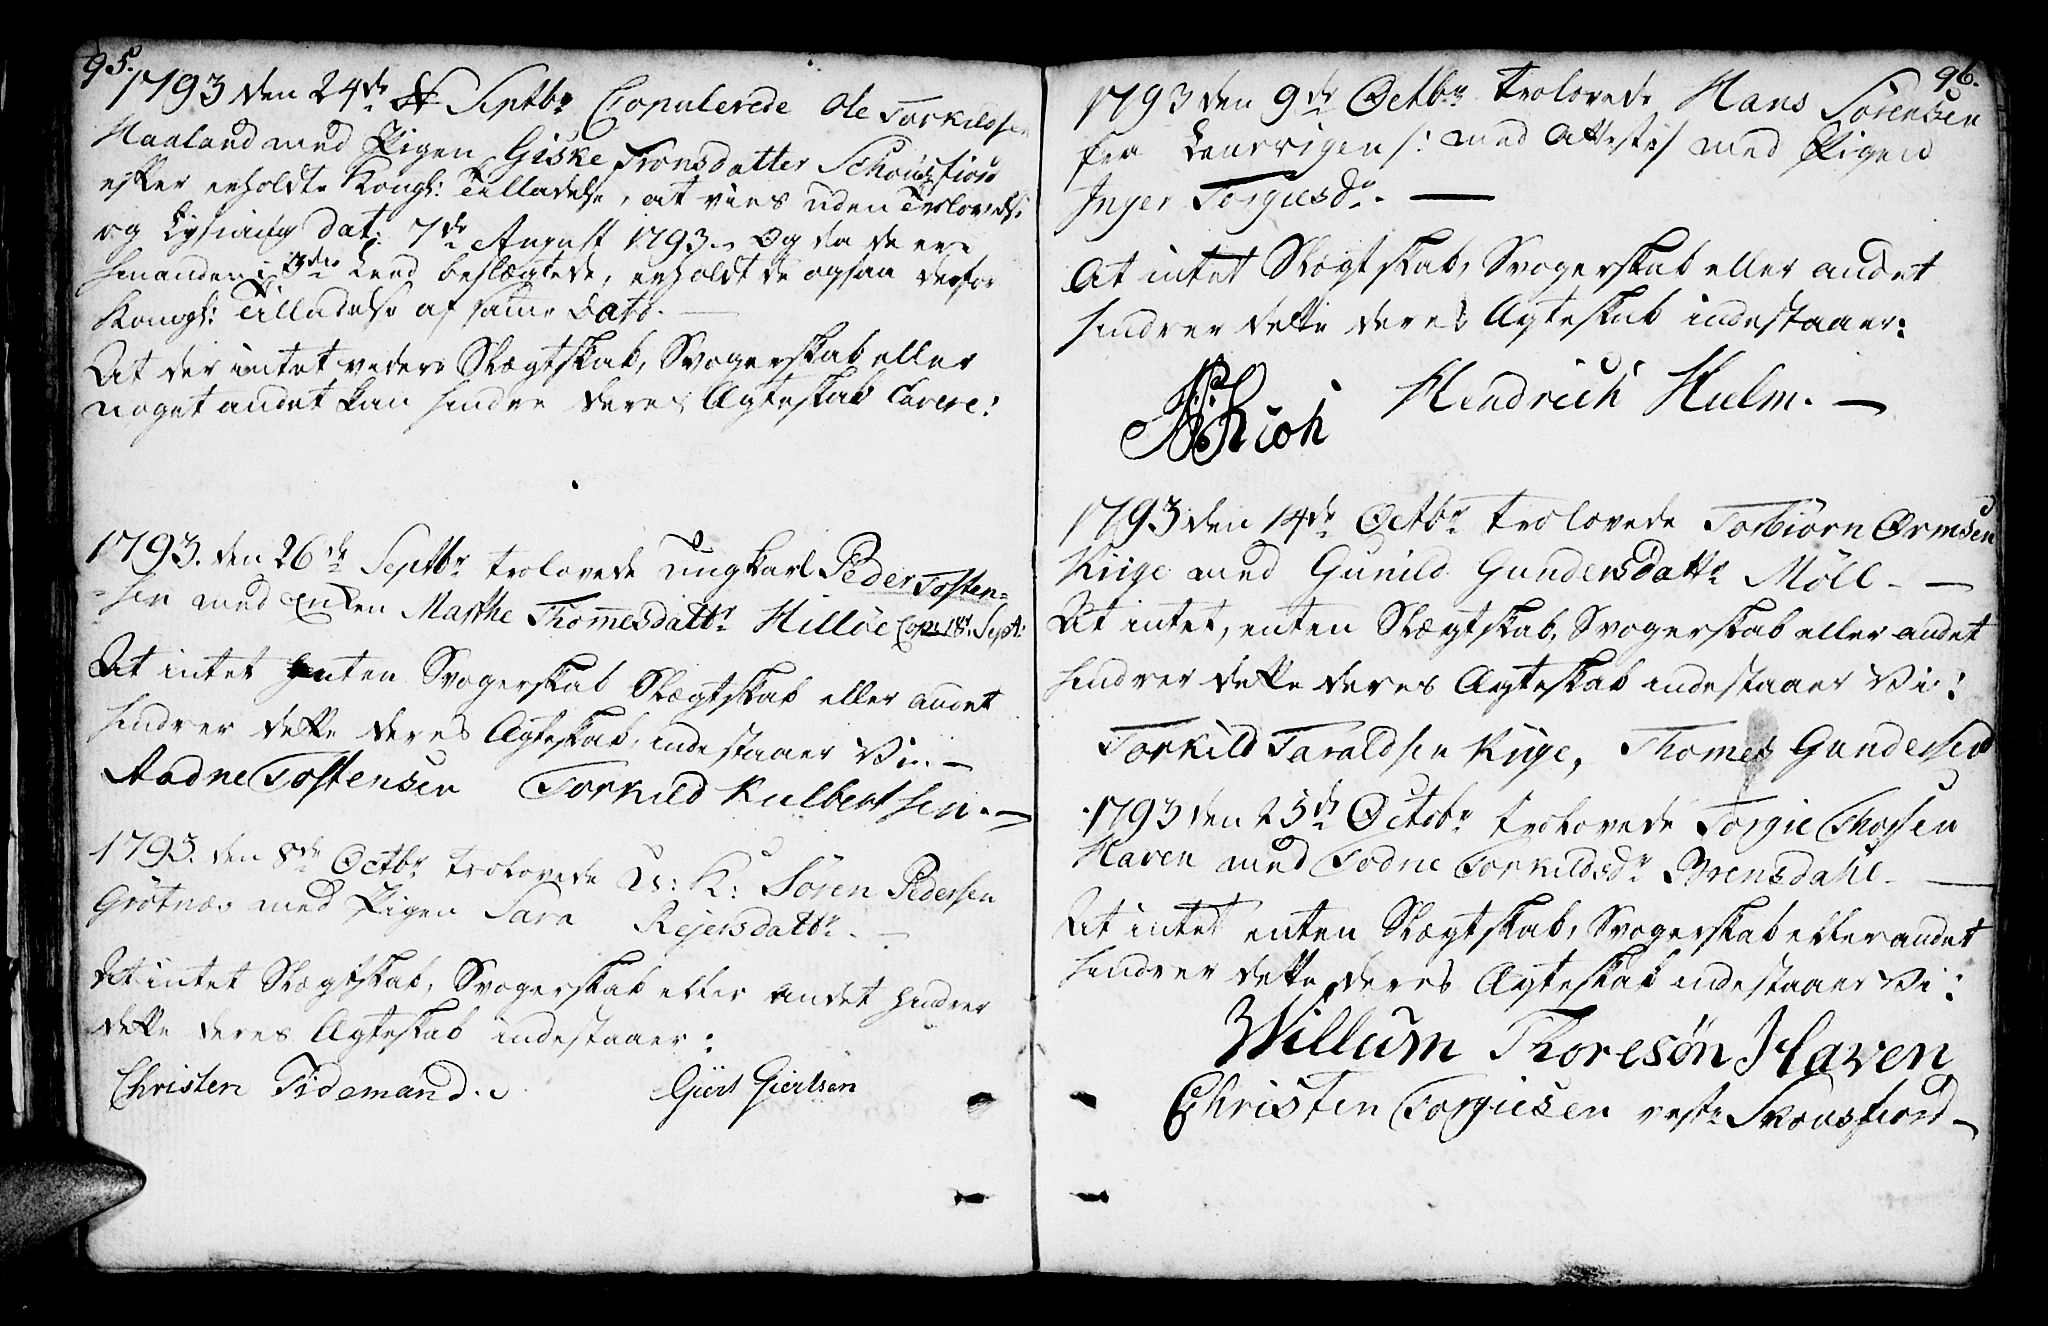 95.
1793 den 24de Septbr Copulerede Ole Torkildsen
Haaland med Pigen Giske Tronsdatter Schousfiord
efter erholdte Kongl: Tilladelse, at vies uden Trolovelse
og Lysning dat: 7de August 1793. Og da de ere
hinanden i 3die Leed beslægtede, erholdt de ogsaa derfor
Kongl: Tilladelse af samme Dato. —
At der intet videre Slægtskab, Svogerskab eller
noget andet kan hindre deres Ægteskab Cavere:
1793. den 26de Septbr trolovede ungkarl Peder Tosten=
=sen med Enken Marthe Thommesdattr Hilløe Cop: 18. Sept:
At intet enten Svogerskab Slægtskab eller andet
hindrer dette deres Ægteskab, indestaaer Vi: —
Aadne Tostensen Torkild Kulbertsen. —
1793. den 8de Octbr trolovede U: K: Sören Pedersen
Grötnæs med Pigen Sara Rejersdattr. —
At intet Slægtskab, Svogerskab eller andet hindrer
dette deres Ægteskab indestaaer:
Christen Tidemand. Giert Giertsen
96.
1793 den 9de Octbr trolovede Hans Sörensen
fra Laurvigen /: med Attest :/ med Pigen
Inger Torgiesdr. —
At intet Slægtskab, Svogerskab eller andet
hindrer dette deres Ægteskab indestaaer:
Hendrich Hulm. —
1793 den 14de Octbr trolovede Torbiörn Ormsen
Kiige med Gunild Gundersdattr Möll. —
At intet, enten Slægtskab, Svogerskab eller andet
hindrer dette deres Ægteskab indestaaer Vi:
Torkild Taraldsen Kige, Thomes Gundersen
1793 den 25de Octobr trolovede Torgie Thorsen
Haven med Todne Torkildsdr Brensdahl. —
At intet enten Slægtskab, Svogerskab eller andet
hindrer dette deres Ægteskab indestaaer Vi:
Willum Thoresøn Haven
Christen Torgiusen vestr Skousfiord —